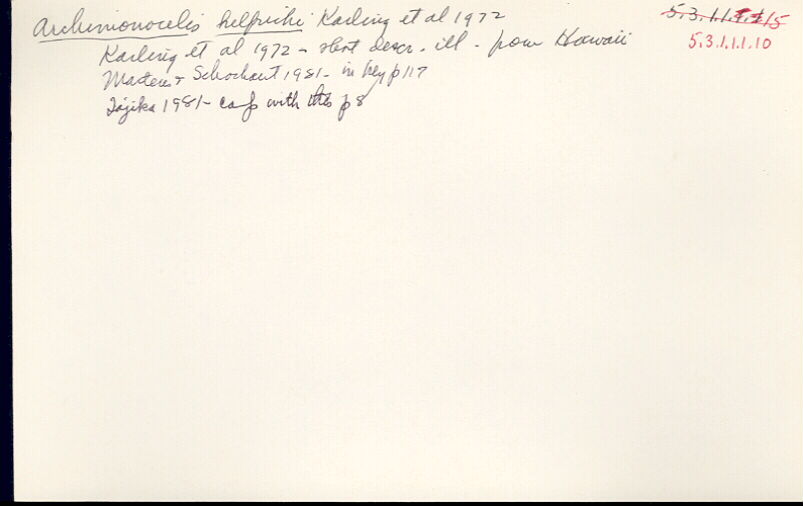 Archimonocelis helfrichi Karling et al 1972
5.3.1.1.1.10
Karling et al 1972 - short descr. ill - from Hawaii
Martens & Schockaert 1981 - in key p 117
Tajika 1981 - comp with this p 8